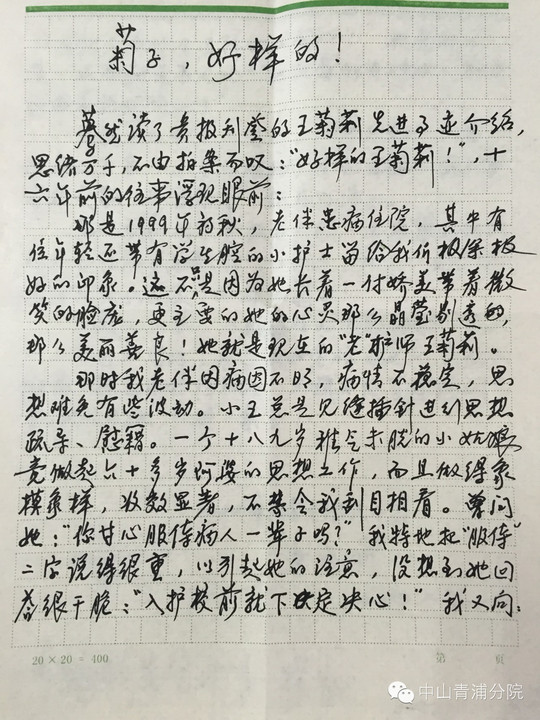 菊子，好样的！
蓦然读了贵报刊登的王菊莉先进事迹介绍，
思绪万千，不由拍案而叹："好样的王菊莉！"，十
六年前的往事浮现眼前：
那是1999年初秋，老伴患病住院，其中有
位年轻还带有学生腔的小护士留给我们极深极
好的印象。这不只是因为她长着一付娇美带着微
笑的脸庞，更主要的她的心灵那么晶莹剔透的，
那么美丽善良！她就是现在的"老"护师王菊莉。
那时我老伴因病因不明，病情不稳定，思
想难免有些波动。小王总是见缝插针进行思想
疏导、慰藉。一个十八九岁稚气未脱的小姑娘
竟做起六十多岁阿婆的思想工作，而且做得象
模象样，收效显著，不禁令我刮目相看。曾问
她："你甘心服侍病人一辈子吗？"我特地把"服侍"
二字说得很重，以引起她的注意，没想到她回
答很干脆："入护校前就下决定决心！"我又问：
20×20=400
第 页
中山青浦分院